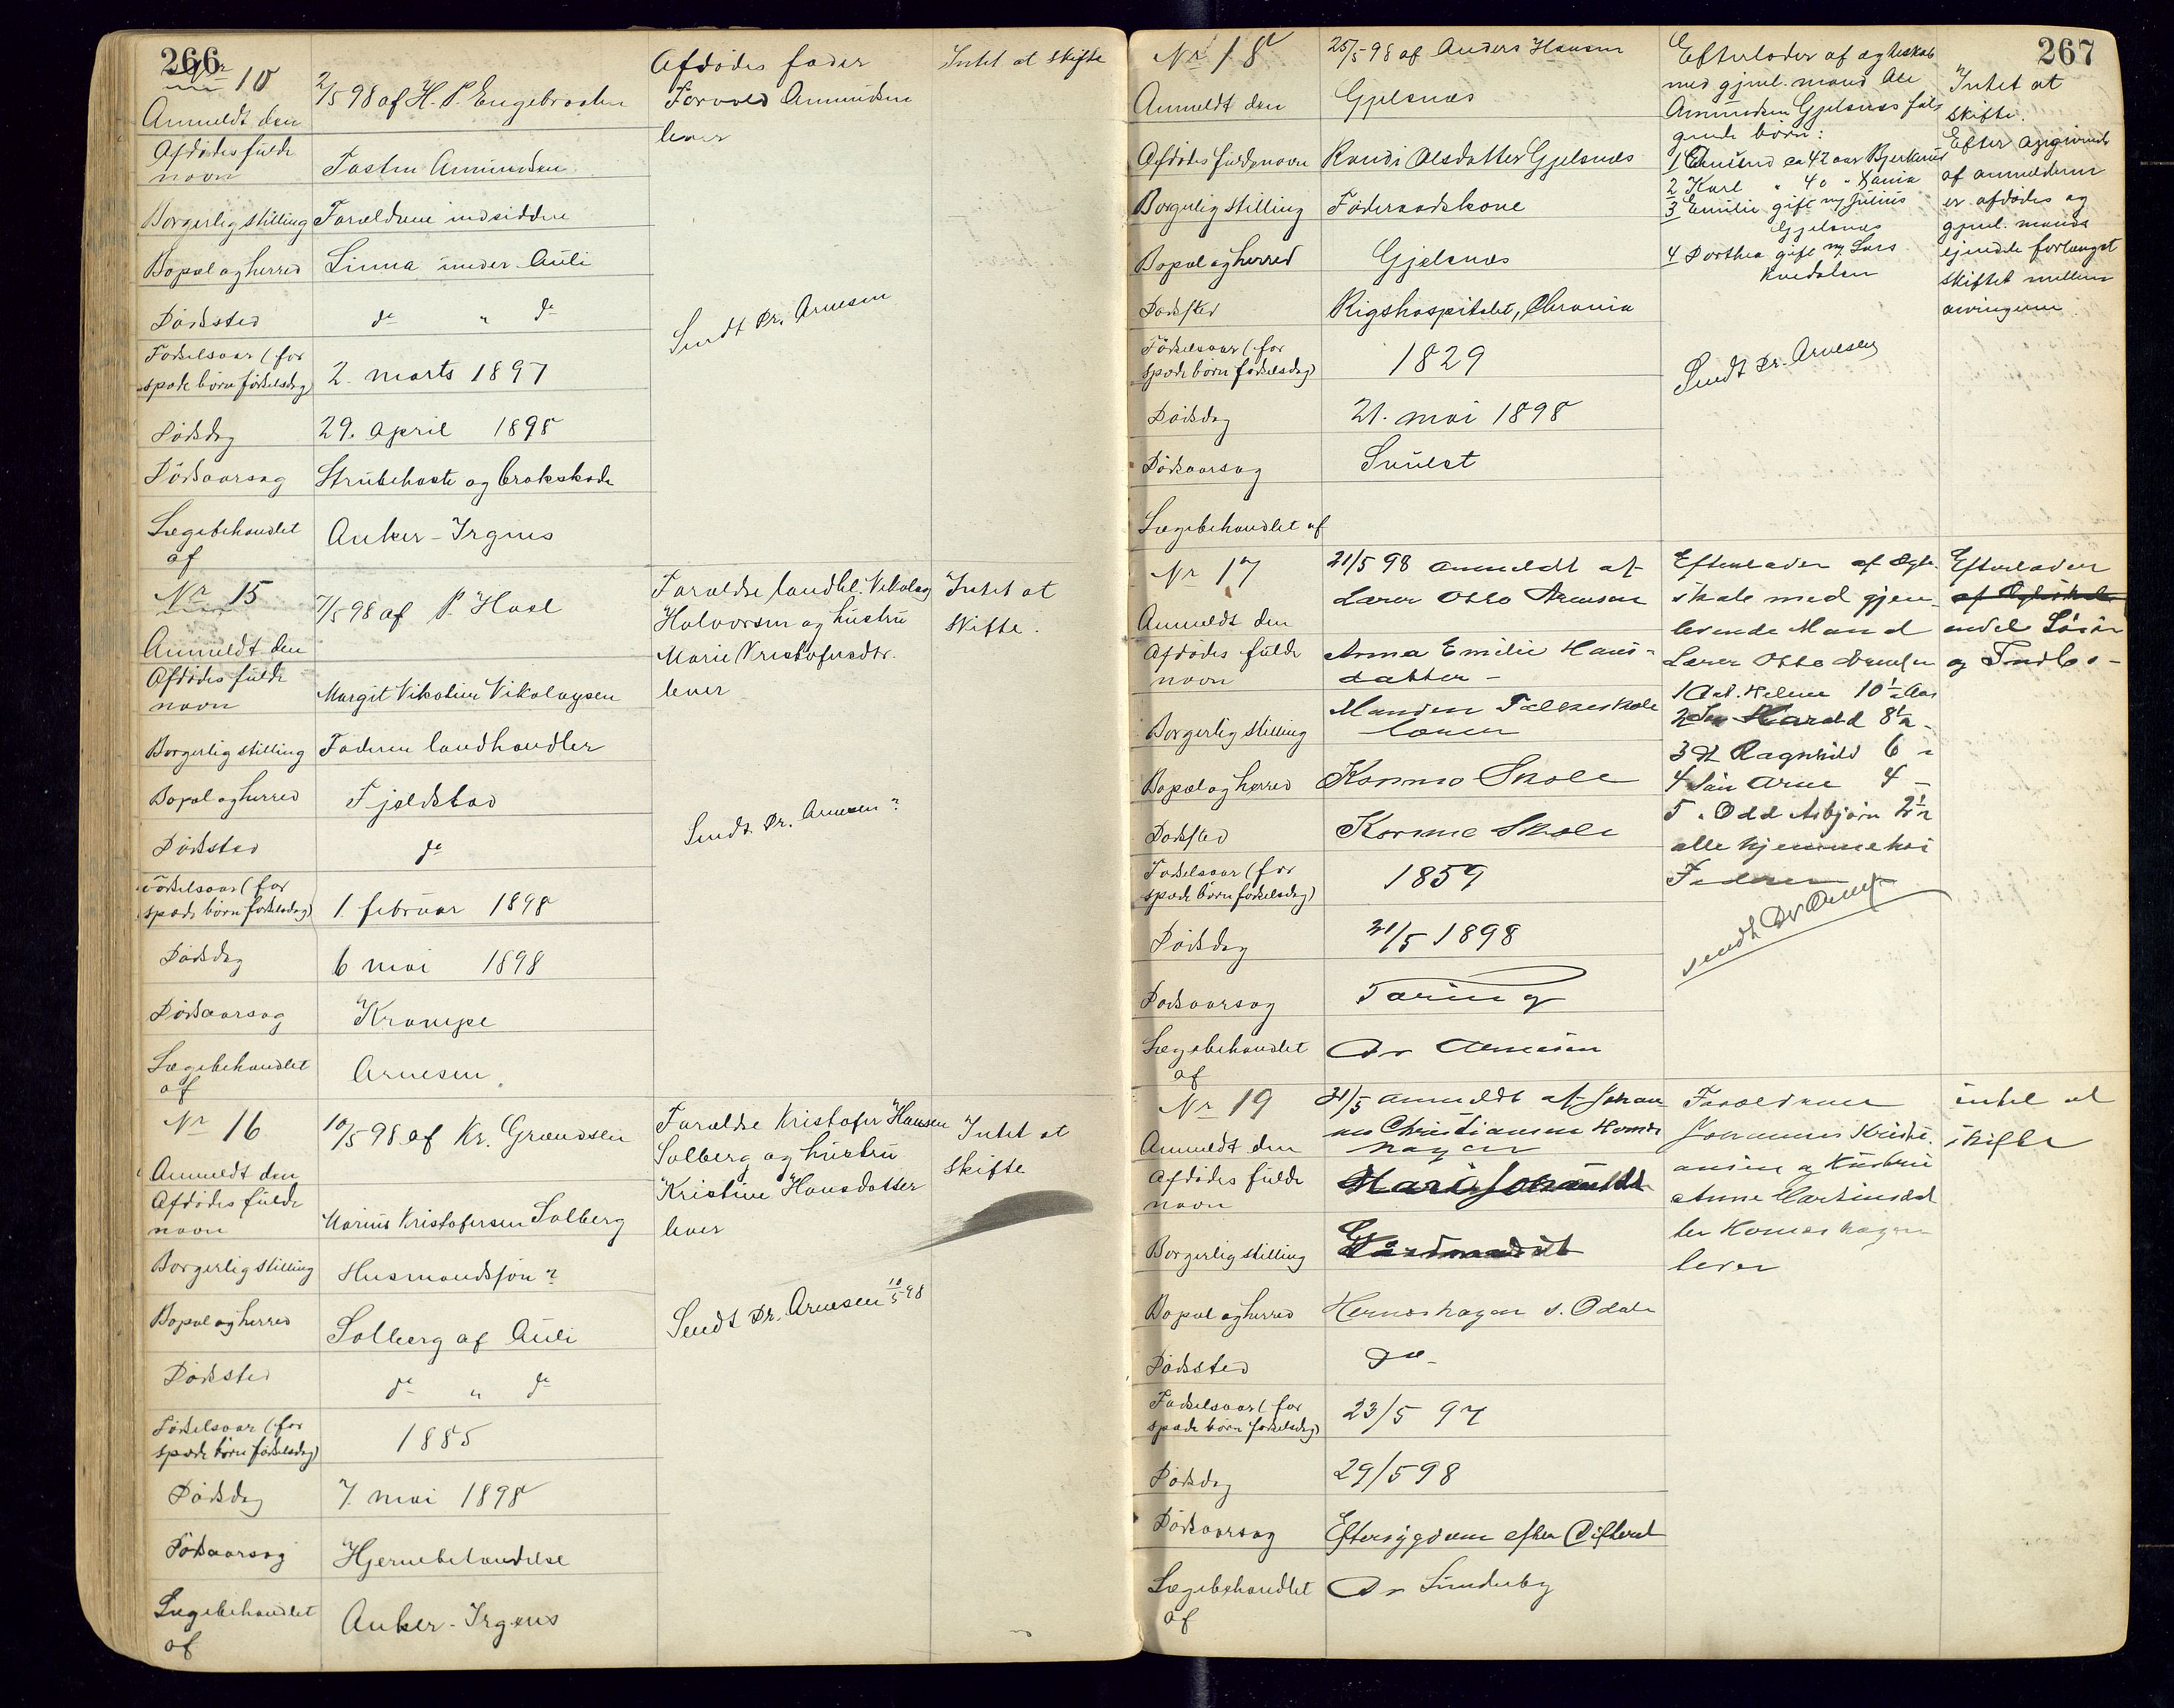 266
Nr 10
Anmeldt den
2/5 98 af H. P. Engebraaten
Afdødes fulde
navn
Tosten Amundsen
Borgerlig stilling
Forældrene indsiddere
Bopæl og herred
Linna under Auli
Dødssted
do " do
Fødselsaar (for
spæde børn fødselsdag)
2. marts 1897
Dødsdag
29. april 1898
Dødsaarsag
Strubehoste og
Lægebehandlet
af
Anker-Irgens
Afdødes fader
Torvald Amundsen
lever
Sendt Dr. Arnesen
Intet at skifte
Nr 15
Anmeldt den
7/5 98 af P. Hoel
Afdødes fulde
navn
Margit Nikoline Nikolaysen
Borgerlig stilling
Faderen landhandler
Bopæl og herred
Fjeldstad
Dødssted
do
Fødselsaar (for
spæde børn fødselsdag)
1. februar 1898
Dødsdag
6 mai 1898
Dødsaarsag
Krampe
Lægebehandlet
af
Arnesen
Forældre landhl. Nikolay
Halvorsen og hustru
Marie Kristofersdtr.
lever
Sendt Dr. Arnesen
Intet at
skifte.
Nr 16
Anmeldt den
10/5 98 af Kr. Grændsen
Afdødes fulde
navn
Marius Kristofersen Solberg
Borgerlig stilling
Husmandssøn
Bopæl og herred
Solberg af Auli
Dødssted
do " do
Fødselsaar (for
spæde børn fødselsdag)
1885
Dødsdag
7. mai 1898
Dødsaarsag
Hjernebetændelse
Lægebehandlet
af
Anker-Irgens
Forældre Kristofer Hansen
Solberg og hustru
Kristine Hansdatter
lever
Sendt Dr. Arnesen 10/5 98
Intet at
skifte
267
Nr 18
Anmeldt den
25/5 98 af Anders Hansen
Gjelsnes
Afdødes fulde navn
Randi Olsdatter Gjelsnes
Borgerlig stilling
Føderaadskone
Bopæl og herred
Gjelsnes
Dødssted
Rigshospitalet, Chrania
Fødselsaar (for
spæde børn fødselsdag)
1829
Dødsdag
21. mai 1898
Dødsaarsag
Svulst
Lægebehandlet af
Efterlader af ægteskab
med gjenl. mand Ole
Amundsen Gjelsnes føl-
gende børn:
1 ca 42 aar
2 Karl " 40 "
3 Emilie gift m/ Julius
Gjelsnes
4 Dorthea gift m/ Lars
Kvedalen
Sendt Dr. Arnesen
Intet at
skifte.
Efter angivende
af anmelderen
er afdødes og
gjenl. mands
eiendele forlængst
skiftet mellem
arvingerne.
Nr 17
Anmeldt den
21/5 98 anmeldt af
Lærer Otto Arnesen
Afdødes fulde
navn
Anna Emilie Hans-
datter -
Borgerlig stilling
Manden Folkeskole
lærer
Bopæl og herred
Kormo Skole
Dødssted
Kormo Skole
Fødselsaar (for
spæde børn fødselsdag)
1859
Dødsdag
21/5 1898
Dødsaarsag
Tæring
Lægebehandlet
af
Dr Arnesen
Efterlader af Ægte-
skab med gjen-
levende Mand
Lærer Otto Arnesen
1 Dat. Helene 10½ Aar
2 Søn Harald 8½ -
3 Dt Ragnhild 6 -
4 Søn Arne 4 -
5 " Odd Asbjørn 2½
alle hjemme hos
Faderen
sendt Dr Arnesen
Efterlader
endel Løsøre
og Indbo -
Nr 19
Anmeldt den
31/5 anmeldt af Johan
nes Christiansen Hernes
hagen
Afdødes fulde
navn
Borgerlig stilling
Bopæl og herred
Herneshagen s. Odalen
Dødssted
Do -
Fødselsaar (for
spæde børn fødselsdag)
23/5 97
Dødsdag
29/5 98
Dødsaarsag
Eftersygdom efter Difterit
Lægebehandlet
af
Dr Sunderby
Forældrene
Johannes Kristi-
ansen og Hustru
Anne Martinsdat
ter Herneshagen
lever
intet at
skifte